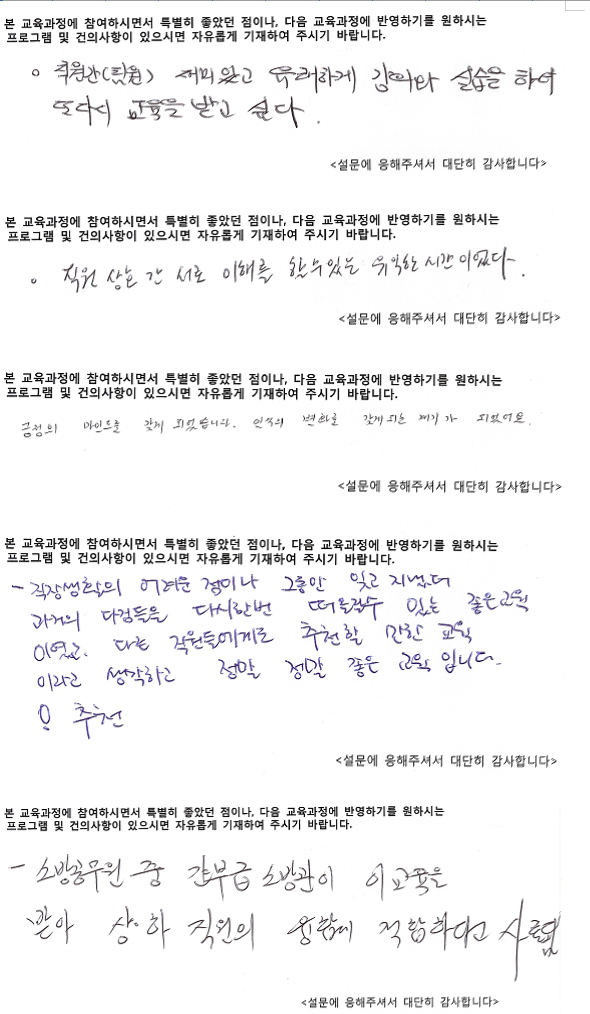 본 교육과정에 참여하시면서 특별히 좋았던 점이나, 다음 교육과정에 반영하기를 원하시는
프로그램 및 건의사항이 있으시면 자유롭게 기재하여 주시기 바랍니다.
○ 직원간(팀원) 재미있고 유쾌하게 강의와 실습을 하여
또다시 교육을 받고 싶다.
<설문에 응해주셔서 대단히 감사합니다>
본 교육과정에 참여하시면서 특별히 좋았던 점이나, 다음 교육과정에 반영하기를 원하시는
프로그램 및 건의사항이 있으시면 자유롭게 기재하여 주시기 바랍니다.
○ 직원 상호 간 서로 이해를 할수있는 유익한 시간이였다.
<설문에 응해주셔서 대단히 감사합니다>
본 교육과정에 참여하시면서 특별히 좋았던 점이나, 다음 교육과정에 반영하기를 원하시는
프로그램 및 건의사항이 있으시면 자유롭게 기재하여 주시기 바랍니다.
긍정의 마인드를 갖게 되었습니다. 인식의 변화를 갖게되는 계기가 되었어요.
<설문에 응해주셔서 대단히 감사합니다>
본 교육과정에 참여하시면서 특별히 좋았던 점이나, 다음 교육과정에 반영하기를 원하시는
프로그램 및 건의사항이 있으시면 자유롭게 기재하여 주시기 바랍니다.
- 직장생활의 어려운 점이나 그동안 잊고 지냈던
과거의 다짐들을 다시한번 떠올릴수 있는 좋은교육
이였고. 다른 직원들에게도 추천할 만한 교육
이라고 생각하고 정말 정말 좋은 교육입니다.
추천
<설문에 응해주셔서 대단히 감사합니다>
본 교육과정에 참여하시면서 특별히 좋았던 점이나, 다음 교육과정에 반영하기를 원하시는
프로그램 및 건의사항이 있으시면 자유롭게 기재하여 주시기 바랍니다.
- 소방공무원 중 간부급 소방관이 이교육을
받아 상·하 직원의 융합에 적합하다고 사료됨
<설문에 응해주셔서 대단히 감사합니다>